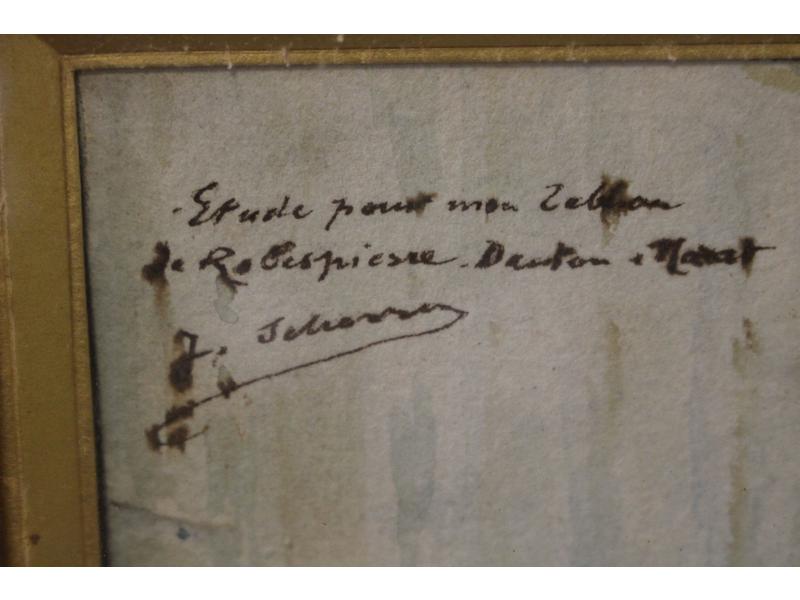 Etude pour mon Tableau
de Robespierre. Danton & Marat
J. Scherrer